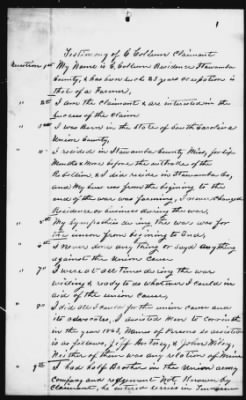 1
Testimony of C Collum Claimant
Question 1st My Name is C Collum Residence Itawamba
County, & has been such 28 years occupation is
that of a Farmer,
" 2d I am the Claimant & am interested in the
success of the claim
" 3rd I was born in the State of South Carolina
Union County,
" I resided in Itawamba County Miss, for Six
Months & more before the outbreak of the
Rebellion, & I did reside in Itawamba Co,
and My business from the beginning to the
end of the war was farming, I never changed
Residence or business during the war,
" 5th My sympathies during the war was for
the union from beginning to end,
" 6th I never done any thing or sayd any thing
against the Union Cause
" 7 I were at all times during the war
willing & ready to do whatever I could in
aid of the union cause,
" 8 I did all I could for the union cause and
its advocates, I assisted Men to corinth
in the year 1863, Names of Persons so assisted
is as follows, Jeff & John Wilson,
Neither of them was any relation of Mine
" 9th I had half Brother in the Union army
company and regiment Not Known by
claimant, he entered service in Tennessee